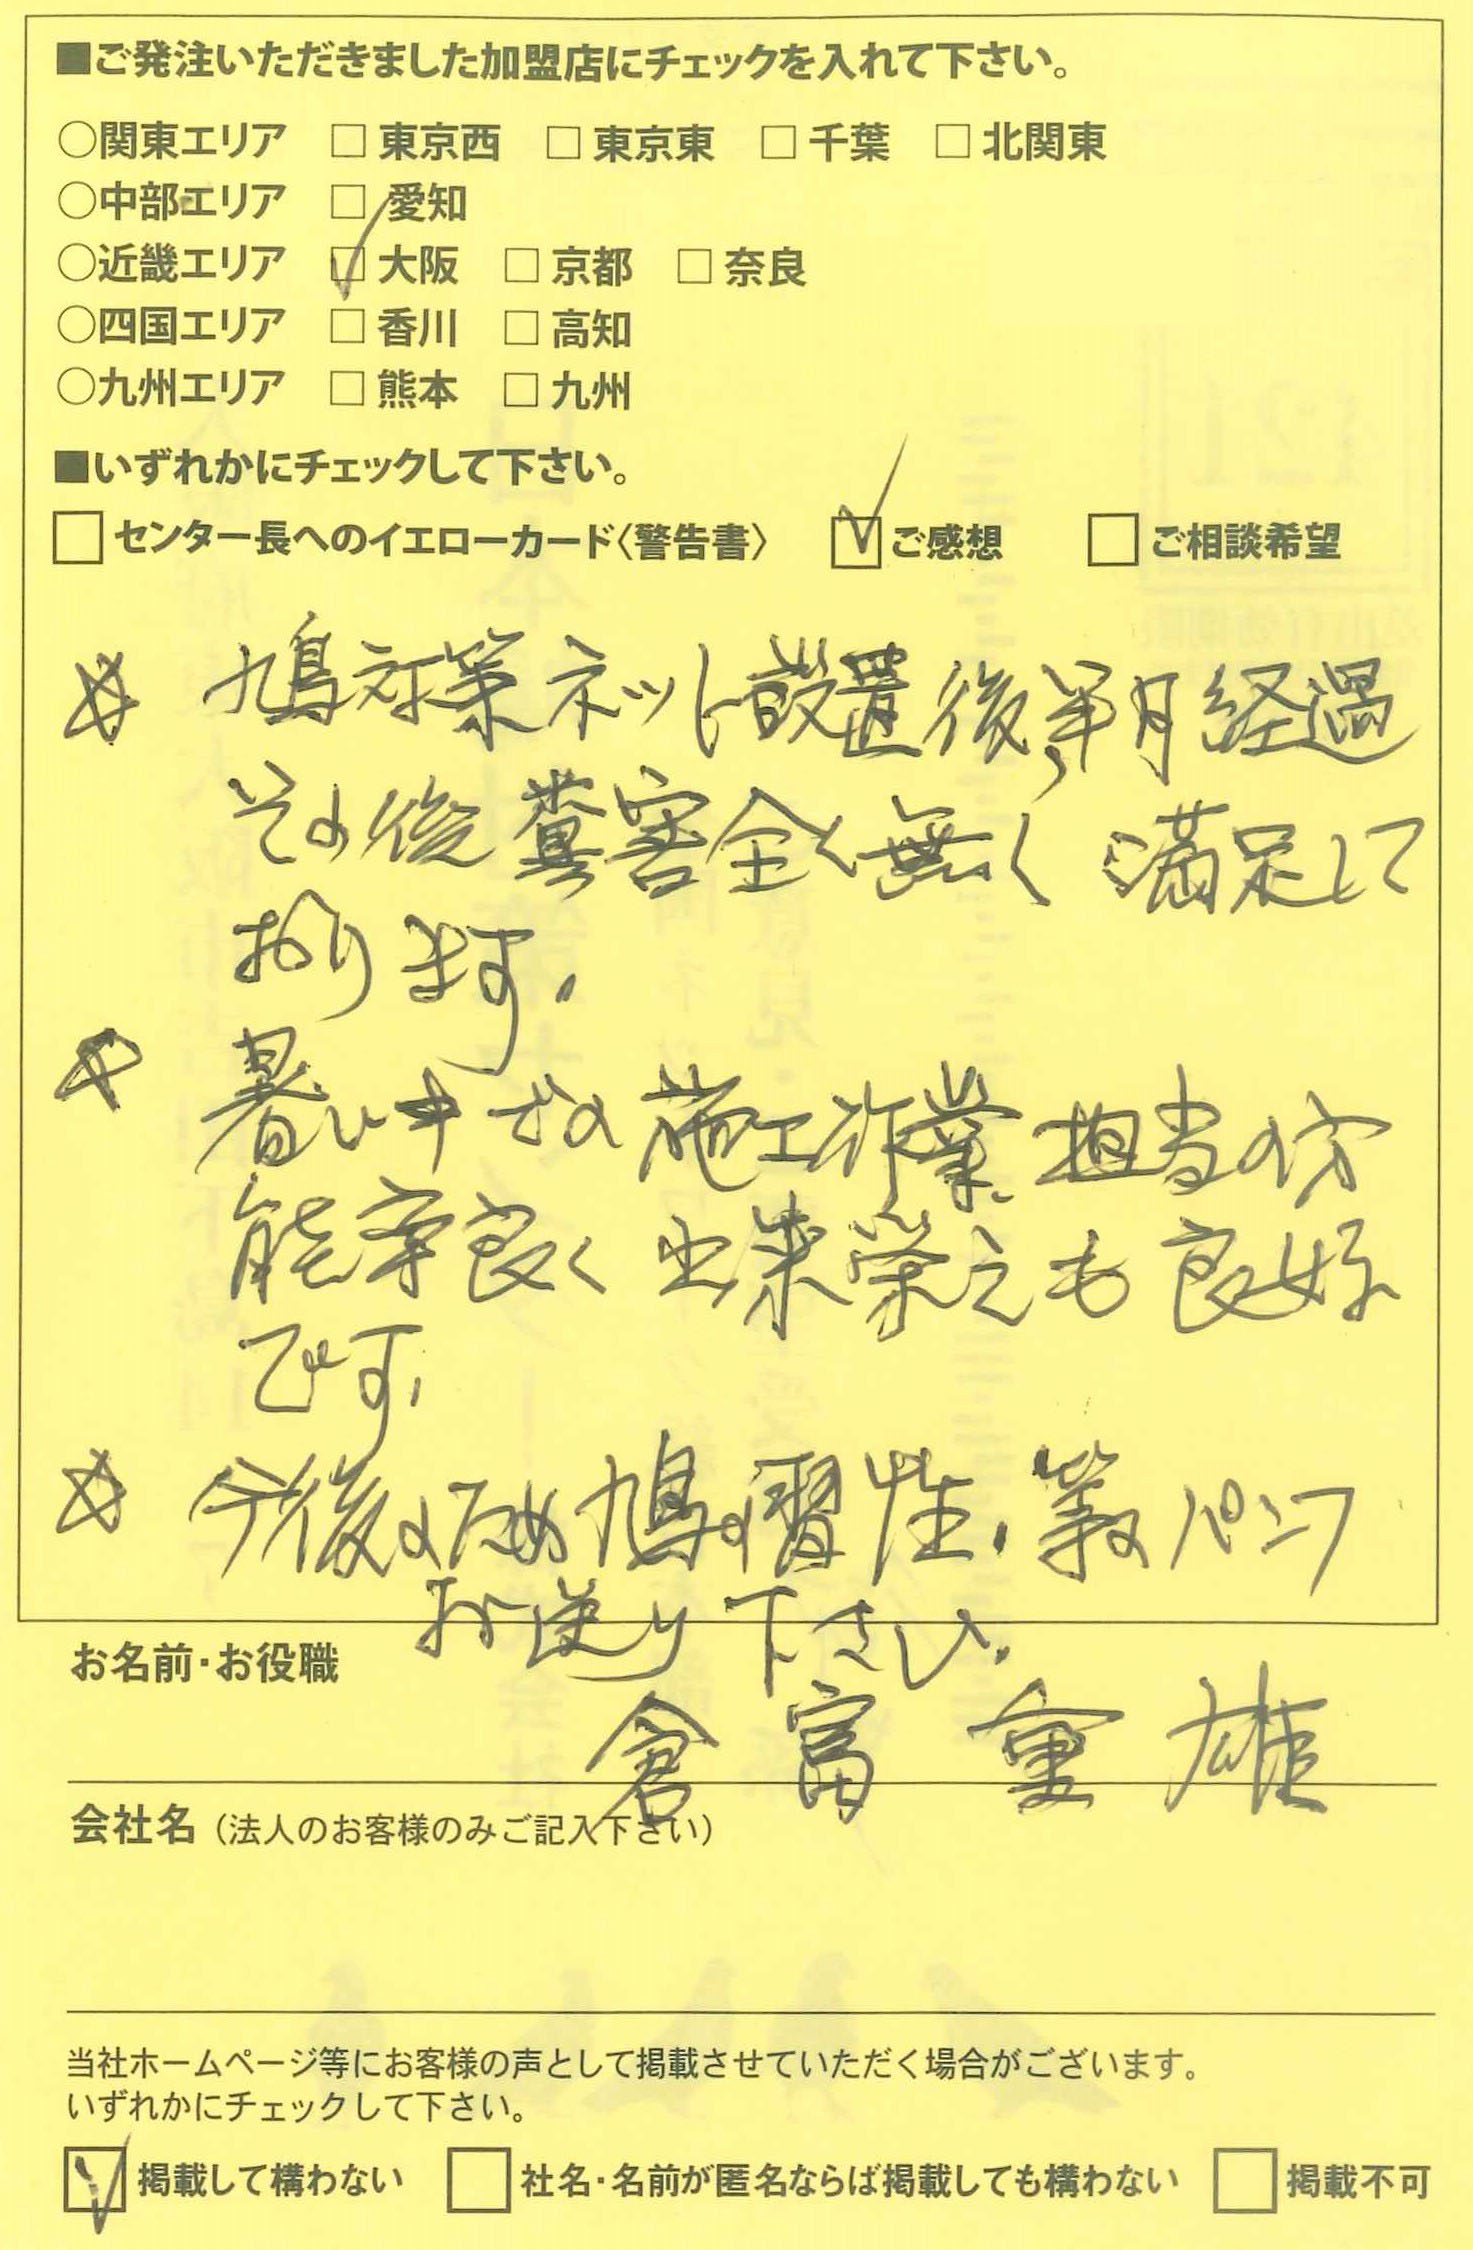 ■ご発注いただきました加盟店にチェックを入れて下さい。
○関東エリア □ 東京西 □ 東京東 □ 千葉 □ 北関東
○中部エリア □ 愛知
○近畿エリア ☑ 大阪 □ 京都 □ 奈良
○四国エリア □ 香川 □ 高知
○九州エリア □ 熊本 □ 九州
■いずれかにチェックして下さい。
□ センター長へのイエローカード〈警告書〉 ☑ ご感想 □ ご相談希望
☆ 鳩対策ネット設置後、半月経過
その後糞害全く無く 満足して
おります。
☆ 暑い中での施工作業、担当の方
能率良く 出来栄えも良好
です。
☆ 今後のため鳩の習性、等のパンフ
お送り下さい。
お名前・お役職
倉富重雄
会社名（法人のお客様のみご記入下さい）
当社ホームページ等にお客様の声として掲載させていただく場合がございます。
いずれかにチェックして下さい。
☑ 掲載して構わない □ 社名・名前が匿名ならば掲載しても構わない □ 掲載不可